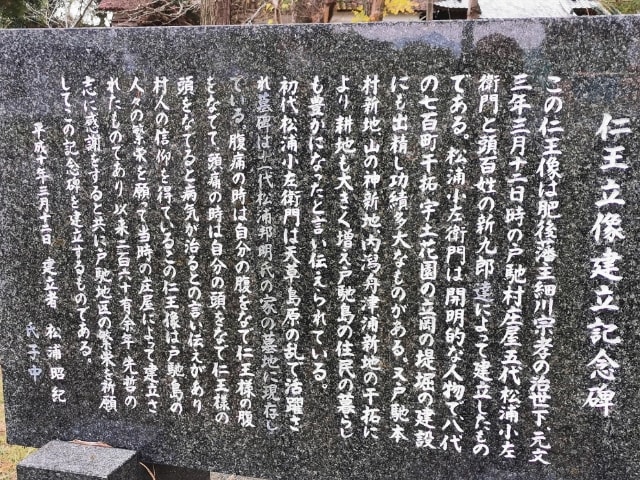 仁王立像建立記念碑
この仁王像は肥後藩主細川宗孝の治世下、元文
三年三月十二日時の戸馳村庄屋五代松浦小左
衛門と頭百姓の新九郎達によって建立したもの
である。松浦小左衛門は開明的な人物で八代
の七百町干拓、宇土花園の立岡の堤堀の建設
にも出精し功績多大なものがある。又戸馳本
村新地、山の神新地、内潟、舟津浦新地の干拓に
より耕地も大きく増え戸馳島の住民の暮らし
も豊かになったと言い伝えられている。
初代松浦小左衛門は天草島原の乱で活躍さ
れ墓碑は十一代松浦邦明氏の家の墓地に現存し
ている。腹痛の時は自分の腹をなで仁王様の腹
をなでて、頭痛の時は自分の頭をなで仁王様の
頭をなでると病気が治るとの言い伝えがあり
村人の信仰を得ているこの仁王像は戸馳島の
人々の繁栄を願って当時の庄屋によって建立さ
れたものであり以来二百六十有余年、先哲の
志に感謝をすると共に戸馳地区の繁栄を祈願
してこの記念碑を建立するものである。
平成十年三月十二日 建立者 松浦昭紀
氏子中